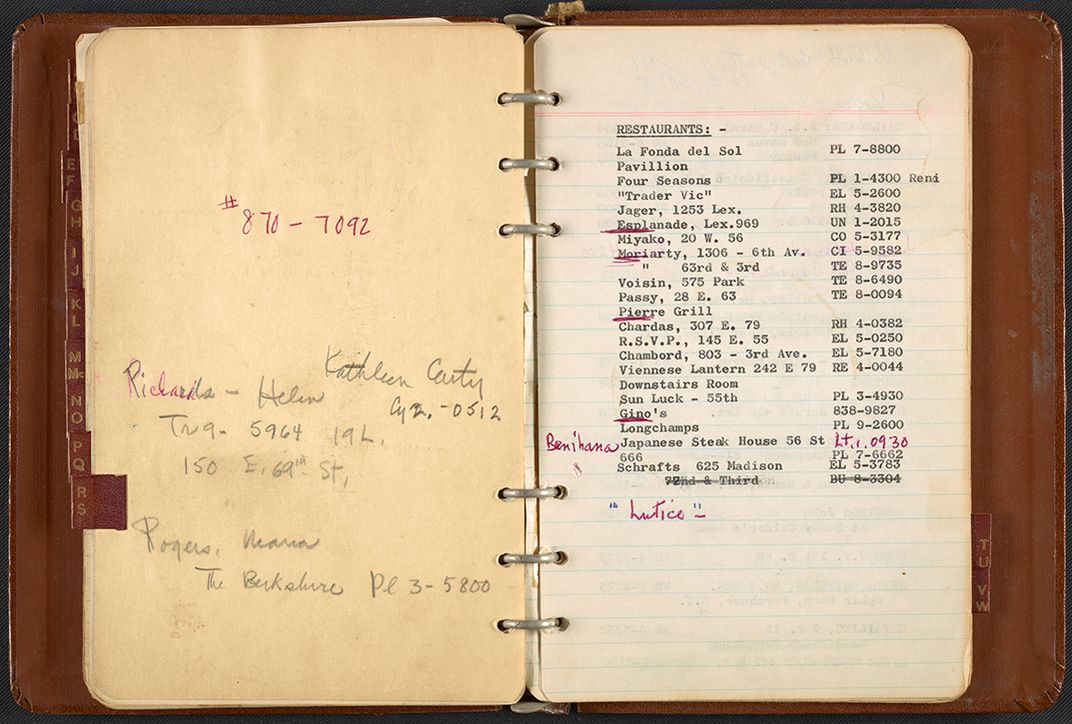 # 870-7092
Richards - Helen
Kathleen Carty
Cy 2, -0512
Tr 9- 5964 19L.
150 E. 69th St,
Rogers, Maria
The Berkshire Pl 3-5800
RESTAURANTS: -
La Fonda del Sol PL 7-8800
Pavillion
Four Seasons PL 1-4300 Reni
"Trader Vic" EL 5-2600
Jager, 1253 Lex. RH 4-3820
Esplanade, Lex.969 UN 1-2015
Miyako, 20 W. 56 CO 5-3177
Moriarty, 1306 - 6th Av. CI 5-9582
" 63rd & 3rd TE 8-9735
Voisin, 575 Park TE 8-6490
Passy, 28 E. 63 TE 8-0094
Pierre Grill
Chardas, 307 E. 79 RH 4-0382
R.S.V.P., 145 E. 55 EL 5-0250
Chambord, 803 - 3rd Ave. EL 5-7180
Viennese Lantern 242 E 79 RE 4-0044
Downstairs Room
Sun Luck - 55th PL 3-4930
Gino's 838-9827
Longchamps PL 9-2600
Benihana Japanese Steak House 56 St Lt.1.0930
666 PL 7-6662
Schrafts 625 Madison EL 5-3783
72nd & Third BU 8-3304
"Lutice"
E
F
GH
I
J
K
L
M
Mc
N
O
P
Q
R
S
T
U
V
W